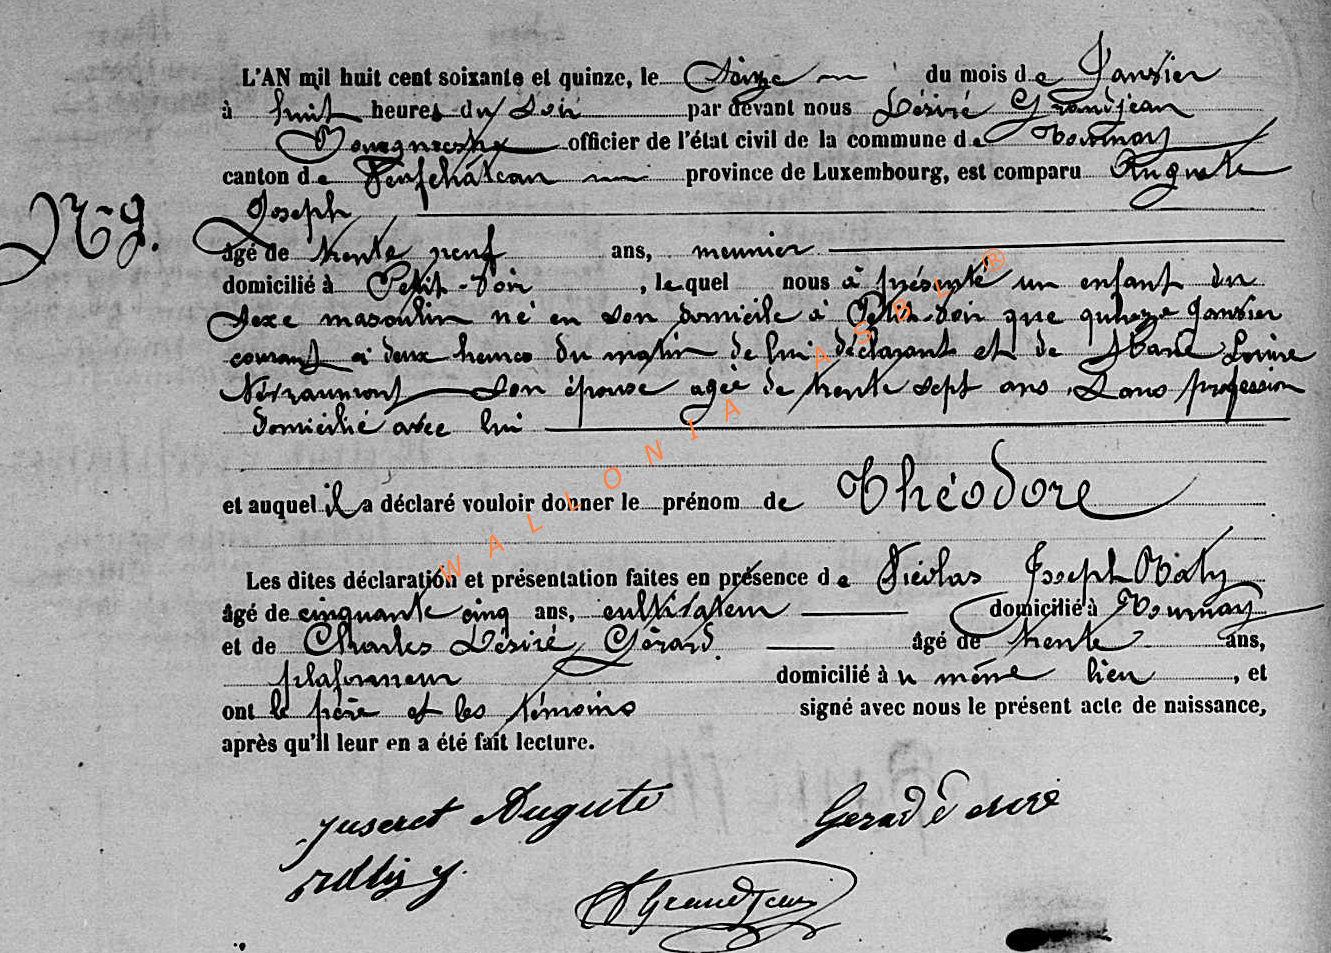 L'AN mil huit cent soixante et quinze, le Seize du mois de Janvier
à huit heures du Soir par devant nous Désiré Grandjean
Bourgmestre officier de l'état civil de la commune de Tournay
canton de Neufchâteau province de Luxembourg, est comparu Auguste
Joseph
N° 9.
âgé de trente neuf ans, meunier
domicilié à Petit-Voir, lequel nous a présenté un enfant du
Sexe masculin né en Son domicile à Petit-Voir que quinze Janvier
courant à deux heures du matin de lui déclarant et de Marie Louise
son épouse agée de trente sept ans, Sans profession
domicilié avec lui
et auquel il a déclaré vouloir donner le prénom de Théodore
Les dites déclaration et présentation faites en présence de Nicolas Joseph
âgé de cinquante cinq ans, cultivateur domicilié à Tournay
et de Charles Désiré Gérard âgé de trente ans,
plafonneur domicilié à u même lieu, et
ont le père et les témoins signé avec nous le présent acte de naissance,
après qu'il leur en a été fait lecture.
Juseret Auguste Gerard Désiré
DGrandjean
WALLONIA ASBL ®